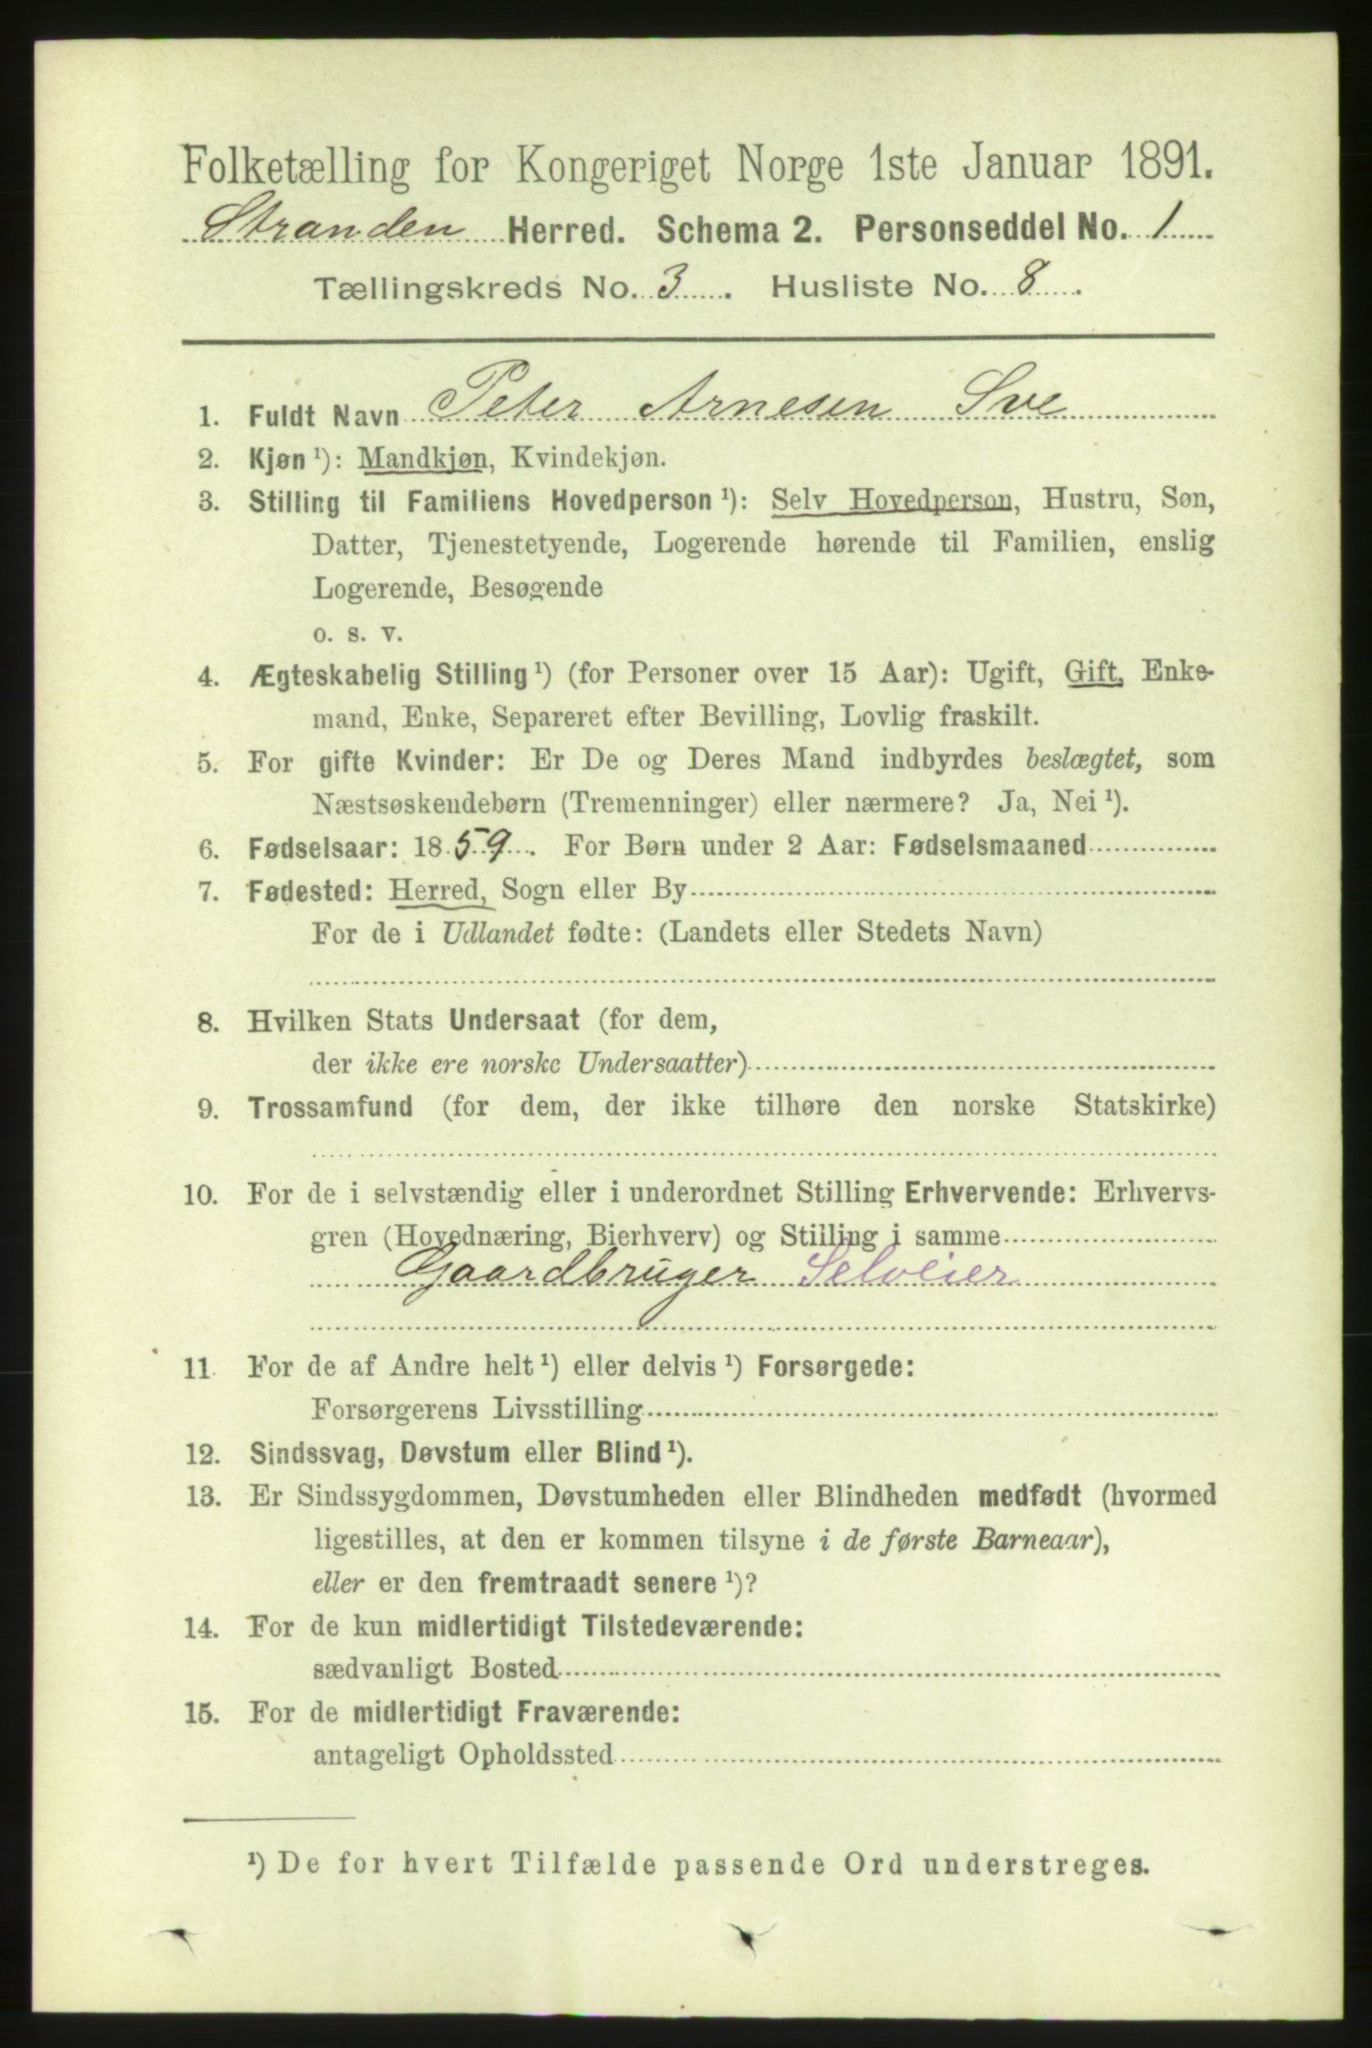 Folketælling for Kongeriget Norge 1ste Januar 1891.
Stranden Herred. Schema 2. Personseddel No. 1
Tællingskreds No. 3. Husliste No. 8.
1. Fuldt Navn Peter Arnesen Sve
2. Kjøn ¹): Mandkjøn, Kvindekjøn.
3. Stilling til Familiens Hovedperson ¹): Selv Hovedperson, Hustru, Søn,
Datter, Tjenestetyende, Logerende hørende til Familien, enslig
Logerende, Besøgende
o. s. v.
4. Ægteskabelig Stilling ¹) (for Personer over 15 Aar): Ugift, Gift, Enke-
mand, Enke, Separeret efter Bevilling, Lovlig fraskilt.
5. For gifte Kvinder: Er De og Deres Mand indbyrdes beslægtet, som
Næstsøskendebørn (Tremenninger) eller nærmere? Ja, Nei ¹).
6. Fødselsaar: 1859. For Børn under 2 Aar: Fødselsmaaned
7. Fødested: Herred, Sogn eller By
For de i Udlandet fødte: (Landets eller Stedets Navn)
8. Hvilken Stats Undersaat (for dem,
der ikke ere norske Undersaatter)
9. Trossamfund (for dem, der ikke tilhøre den norske Statskirke)
10. For de i selvstændig eller i underordnet Stilling Erhvervende: Erhvervs-
gren (Hovednæring, Bierhverv) og Stilling i samme
Gaardbruger Selveier
11. For de af Andre helt ¹) eller delvis ¹) Forsørgede:
Forsørgerens Livsstilling
12. Sindssvag, Døvstum eller Blind ¹).
13. Er Sindssygdommen, Døvstumheden eller Blindheden medfødt (hvormed
ligestilles, at den er kommen tilsyne i de første Barneaar),
eller er den fremtraadt senere ¹)?
14. For de kun midlertidigt Tilstedeværende:
sædvanligt Bosted
15. For de midlertidigt Fraværende:
antageligt Opholdssted
¹) De for hvert Tilfælde passende Ord understreges.